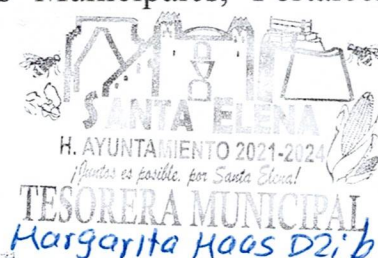 Municipales,
SANTA ELENA
H. AYUNTAMIENTO 2021-2024
¡Juntos es posible, por Santa Elena!
TESORERA MUNICIPAL
Margarita Haas Dzib